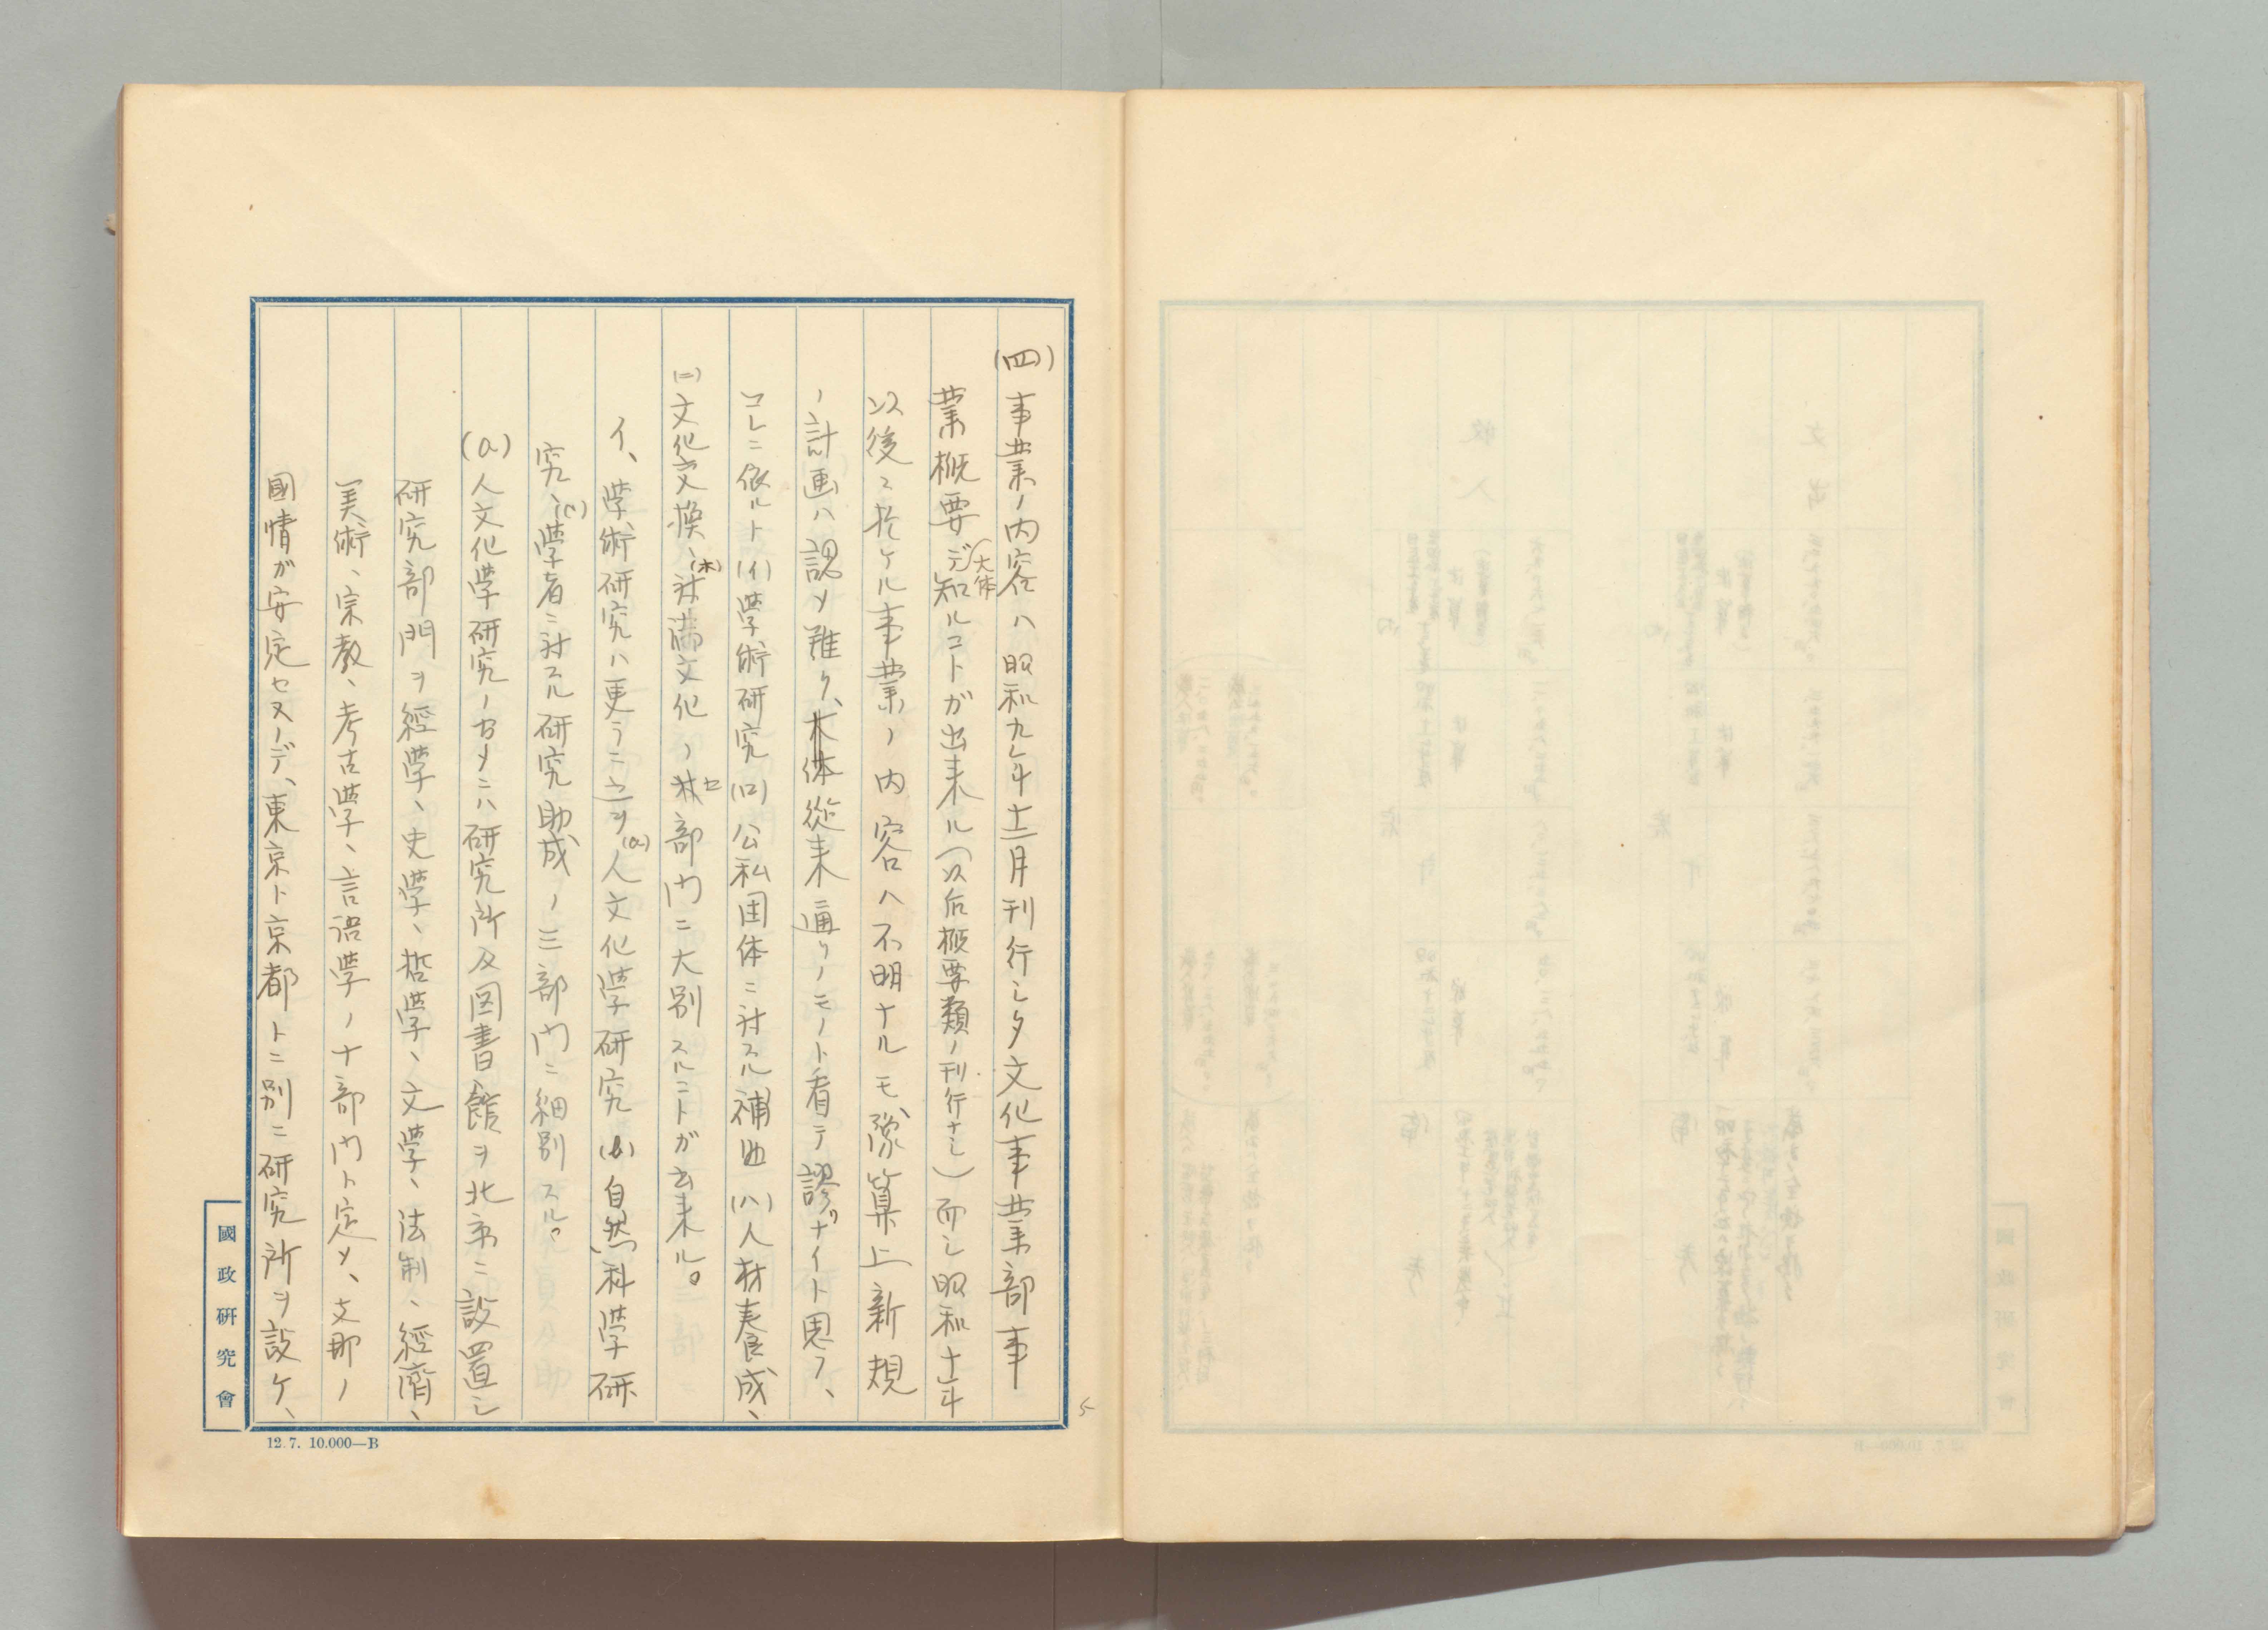 (四)事業ノ内容ハ昭和九年十二月刊行シタ文化事業部事
業概要デ大体知ルコトガ出来ル(以后概要類ノ刊行ナシ)而シ昭和十年
以後ニ於ケル事業ノ内容ハ不明ナルモ豫算上新規
ノ計画ハ認メ難ク、大体從来通リノモノト看テ謬リナイト思フ、
コレニ依ルト(イ)學術研究(ロ)公私団体ニ対スル補助(ハ)人材養成、
(ニ)文化交換、(ホ)対満文化ノ セ部内ニ大別スルコトガ出来ル。
イ、學術研究ハ更ラニ之ヲ(a)人文化學研究(b)自然科學研
究、(c)學者ニ対スル研究助成ノ三部内ニ細別スル。
(a)人文化學研究ノタメニハ研究所及図書館ヲ北京ニ設置シ
研究部門ヲ經學、史學、哲學、文學、法制、經濟、
美術、宗教、考古學、言語學ノ十部内ト定メ、支那ノ
國情が安定セヌノデ、東京ト京都トニ別ニ研究所ヲ設ケ、
5
國政研究會
12.7. 10.000—B